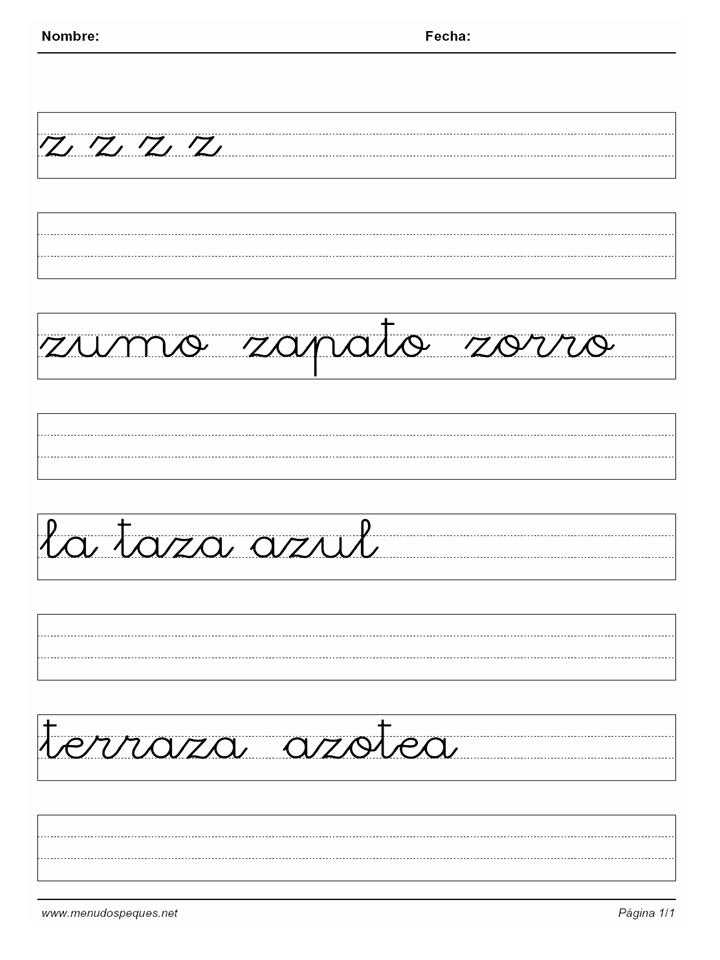 Nombre: Fecha:
z z z z
zumo zapato zorro
la taza azul
terraza azotea
www.menudospeques.net Página 1/1